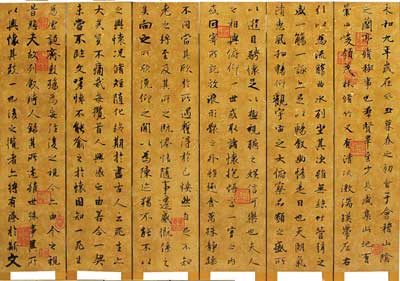 永和九年歲在癸丑暮春之初會于會稽山陰
之蘭亭脩稧事也羣賢畢至少長咸集此地有
崇山峻領茂林脩竹又有清流激湍暎帶左右
引以為流觴曲水列坐其次雖無絲竹管弦之
盛一觴一詠亦足以暢敘幽情是日也天朗氣
清惠風和暢仰觀宇宙之大俯察品類之盛所
以遊目騁懷足以極視聽之娛信可樂也夫人
之相與俯仰一世或取諸懷抱悟言一室之內
或因寄所託放浪形骸之外雖趣舍萬殊靜躁
不同當其欣於所遇暫得於己快然自足不知
老之將至及其所之既惓情隨事遷感慨係之
矣向之所欣俛仰之間以為陳迹猶不能不以
之興懷況脩短隨化終期於盡古人云死生亦
大矣豈不痛哉每攬昔人興感之由若合一契
未嘗不臨文嗟悼不能喻之於懷固知一死生
為虛誕齊彭殤為妄作後之視今亦由今之視
昔悲夫故列敘時人錄其所述雖世殊事異所以
興懷其致一也後之攬者亦將有感於斯文